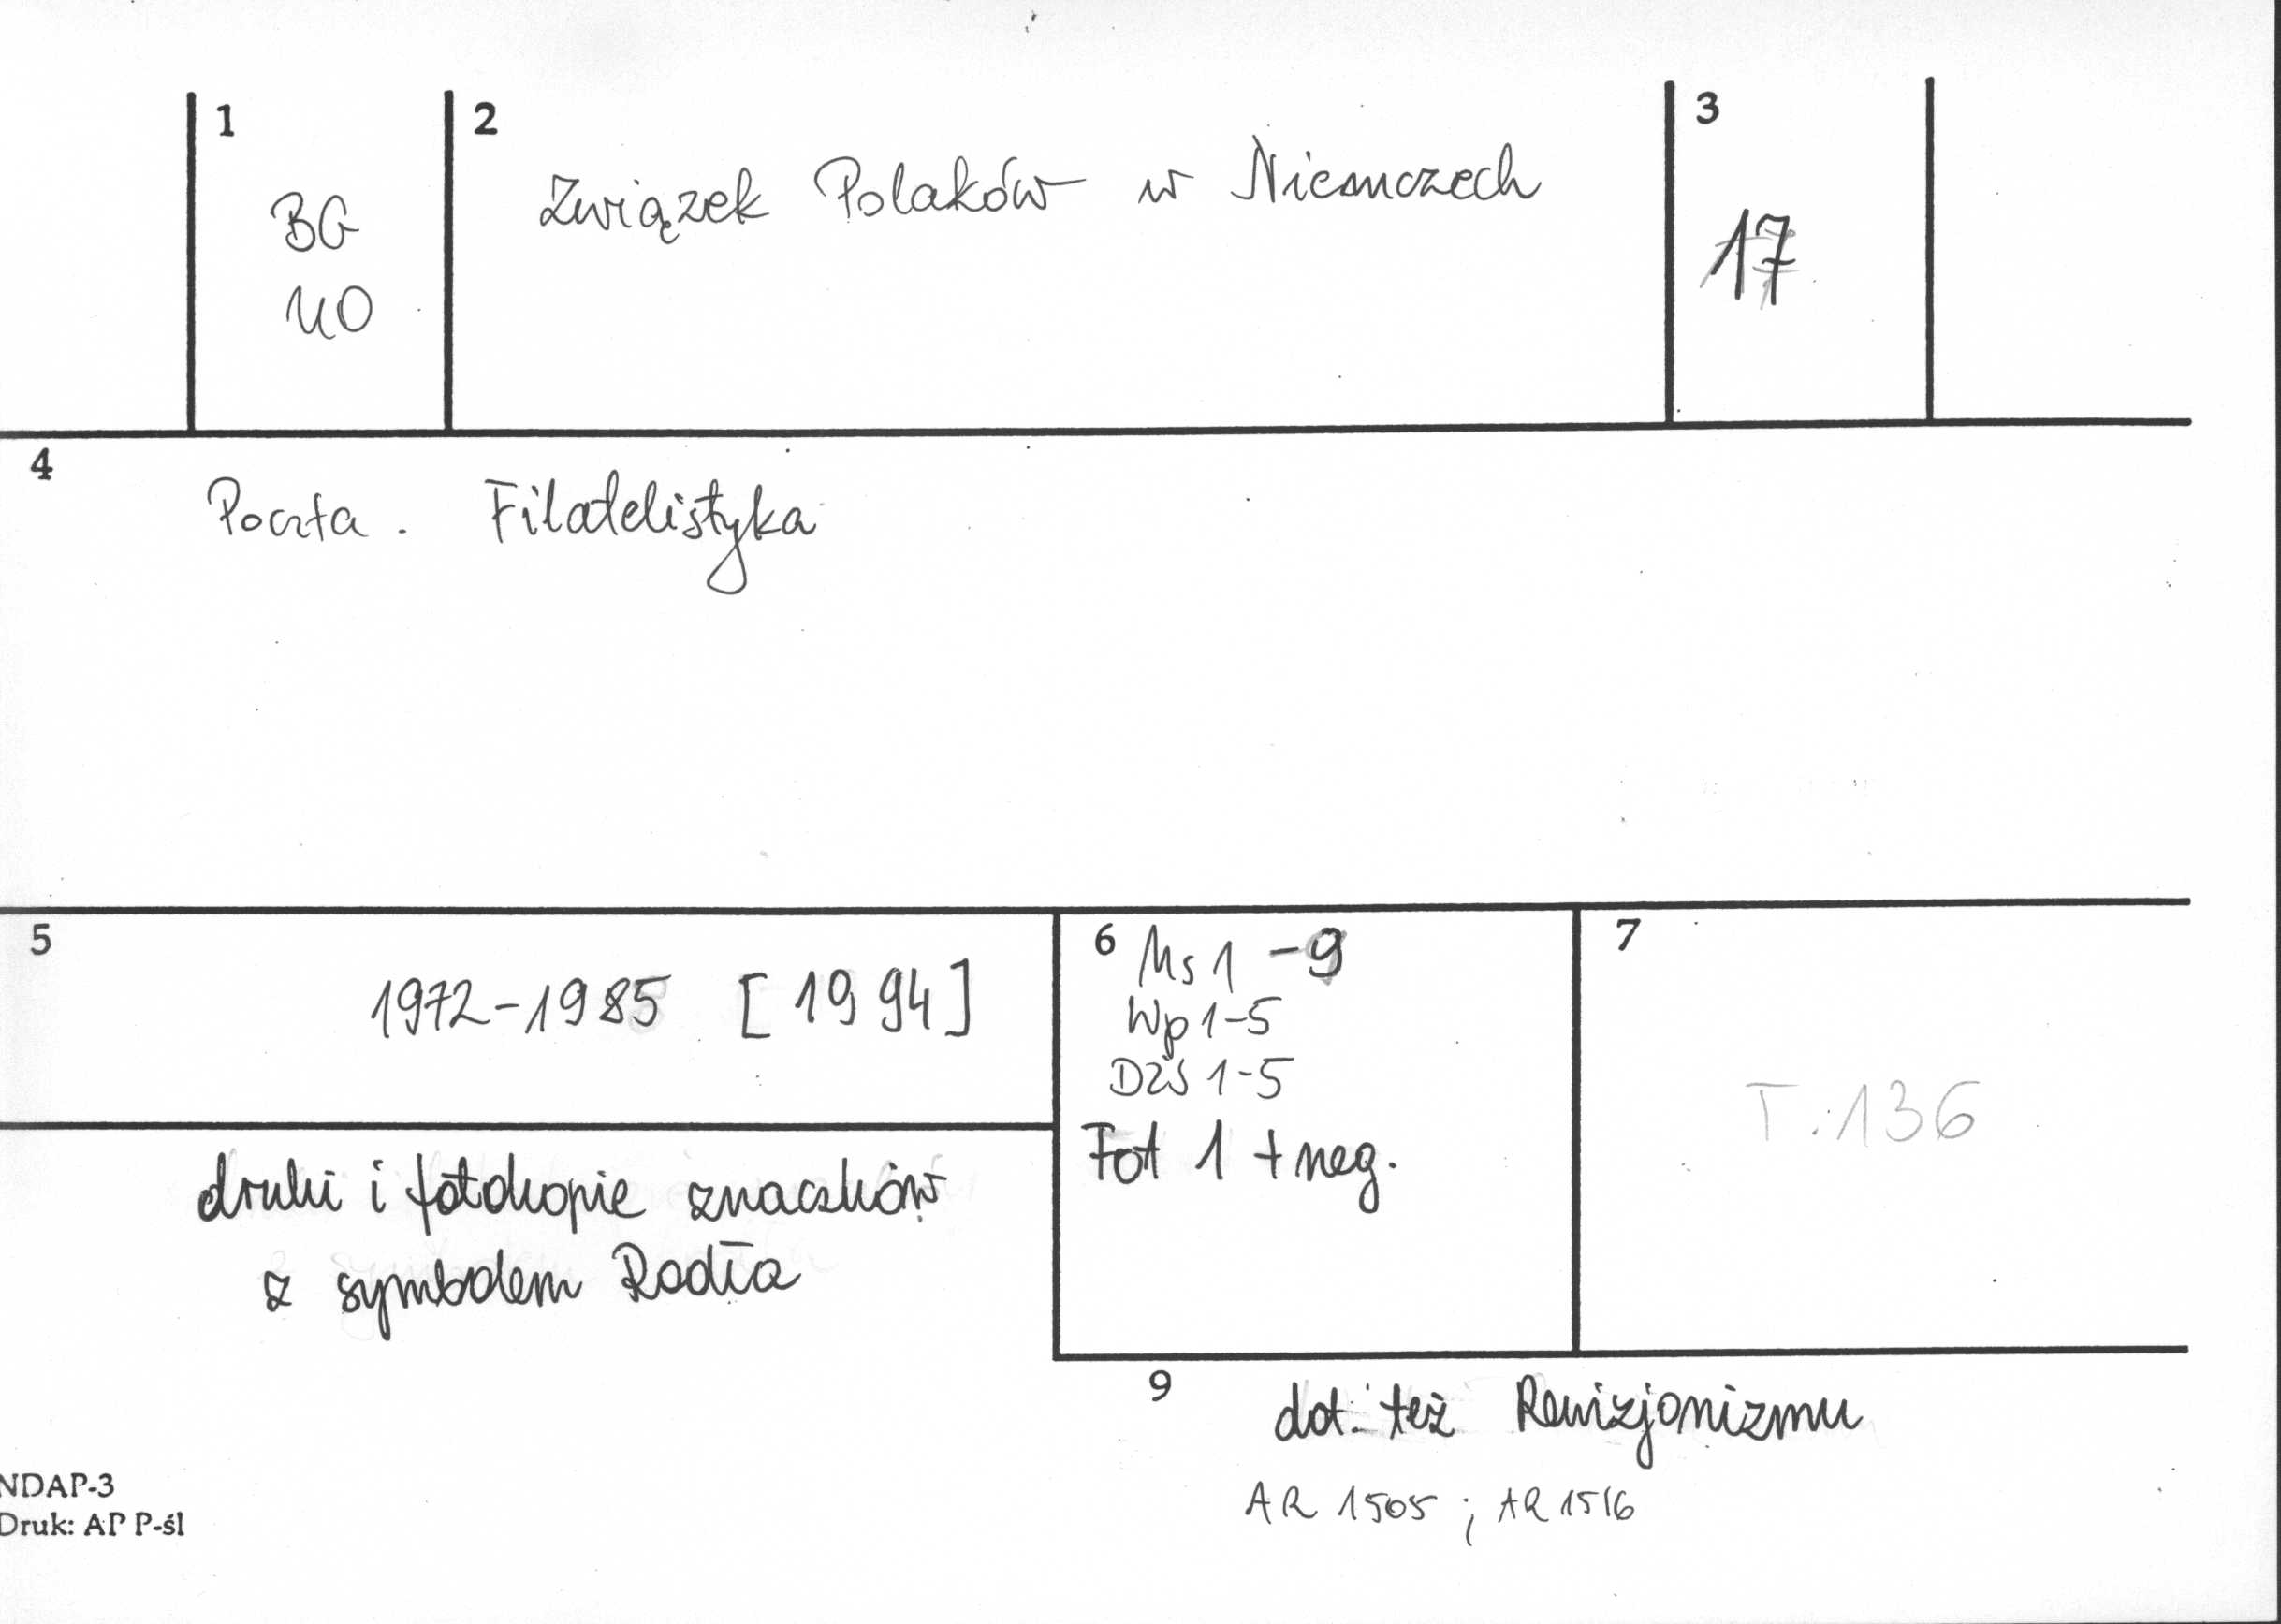 1
BG
UO
2
Związek Polaków w Niemczech
3
17
4
Poczta. Filatelistyka
5
1972-1985 [1994]
6 Ms 1 -9
Wp 1-5
DŻS 1-5
Fot 1 + neg.
7
T. 136
druki i fotokopie znaczków
z symbolem Rodła
9
dot. też Rewizjonizmu
AR 1505 ; AR 1516
NDAP-3
Druk: AP P-śl